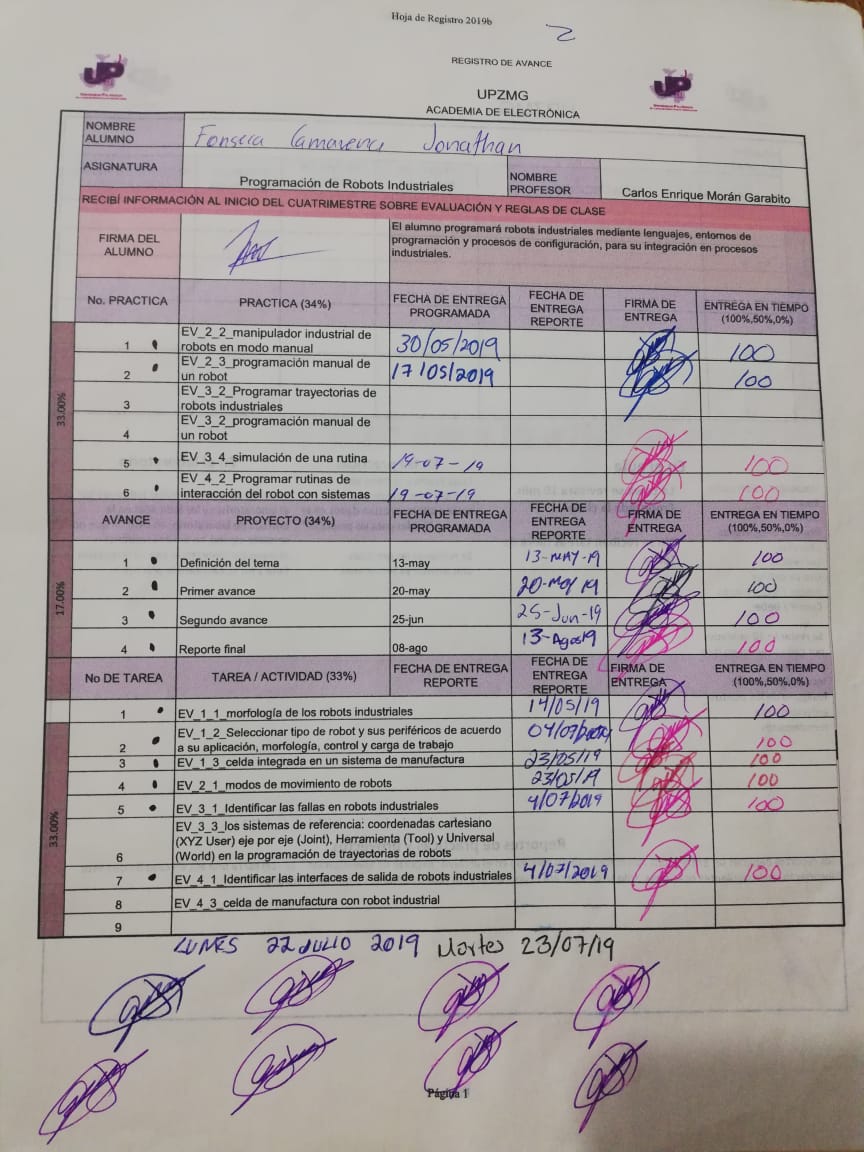 Hoja de Registro 2019b
2
REGISTRO DE AVANCE
UP
UP
UPZMG
ACADEMIA DE ELECTRÓNICA
NOMBRE ALUMNO Fonseca Camarena Jonathan
ASIGNATURA Programación de Robots Industriales NOMBRE PROFESOR Carlos Enrique Morán Garabito
RECIBÍ INFORMACIÓN AL INICIO DEL CUATRIMESTRE SOBRE EVALUACIÓN Y REGLAS DE CLASE
FIRMA DEL ALUMNO
El alumno programará robots industriales mediante lenguajes, entornos de
programación y procesos de configuración, para su integración en procesos
industriales.
No. PRACTICA PRACTICA (34%) FECHA DE ENTREGA PROGRAMADA FECHA DE ENTREGA REPORTE FIRMA DE ENTREGA ENTREGA EN TIEMPO (100%,50%,0%)
33.00%
1 EV_2_2_manipulador industrial de robots en modo manual 30/05/2019 100
2 EV_2_3_programación manual de un robot 17/05/2019 100
3 EV_3_2_Programar trayectorias de robots industriales
4 EV_3_2_programación manual de un robot
5 EV_3_4_simulación de una rutina 19-07-19 100
6 EV_4_2_Programar rutinas de interacción del robot con sistemas 19-07-19 100
AVANCE PROYECTO (34%) FECHA DE ENTREGA PROGRAMADA FECHA DE ENTREGA REPORTE FIRMA DE ENTREGA ENTREGA EN TIEMPO (100%,50%,0%)
17.00%
1 Definición del tema 13-may 13-MAY-19 100
2 Primer avance 20-may 20-May 19 100
3 Segundo avance 25-jun 25-Jun-19 100
4 Reporte final 08-ago 13-Agos19 100
No DE TAREA TAREA / ACTIVIDAD (33%) FECHA DE ENTREGA REPORTE FECHA DE ENTREGA REPORTE FIRMA DE ENTREGA ENTREGA EN TIEMPO (100%,50%,0%)
33.00%
1 EV_1_1_morfología de los robots industriales 14/05/19 100
2 EV_1_2_Seleccionar tipo de robot y sus periféricos de acuerdo a su aplicación, morfología, control y carga de trabajo 04/07/2019 100
3 EV_1_3_celda integrada en un sistema de manufactura 23/05/19 100
4 EV_2_1_modos de movimiento de robots 23/05/19 100
5 EV_3_1_Identificar las fallas en robots industriales 4/07/2019 100
6 EV_3_3_los sistemas de referencia: coordenadas cartesiano (XYZ User) eje por eje (Joint), Herramienta (Tool) y Universal (World) en la programación de trayectorias de robots
7 EV_4_1_Identificar las interfaces de salida de robots industriales 4/07/2019 100
8 EV_4_3_celda de manufactura con robot industrial
9
LUNES 22 JULIO 2019 Martes 23/07/19
Página 1